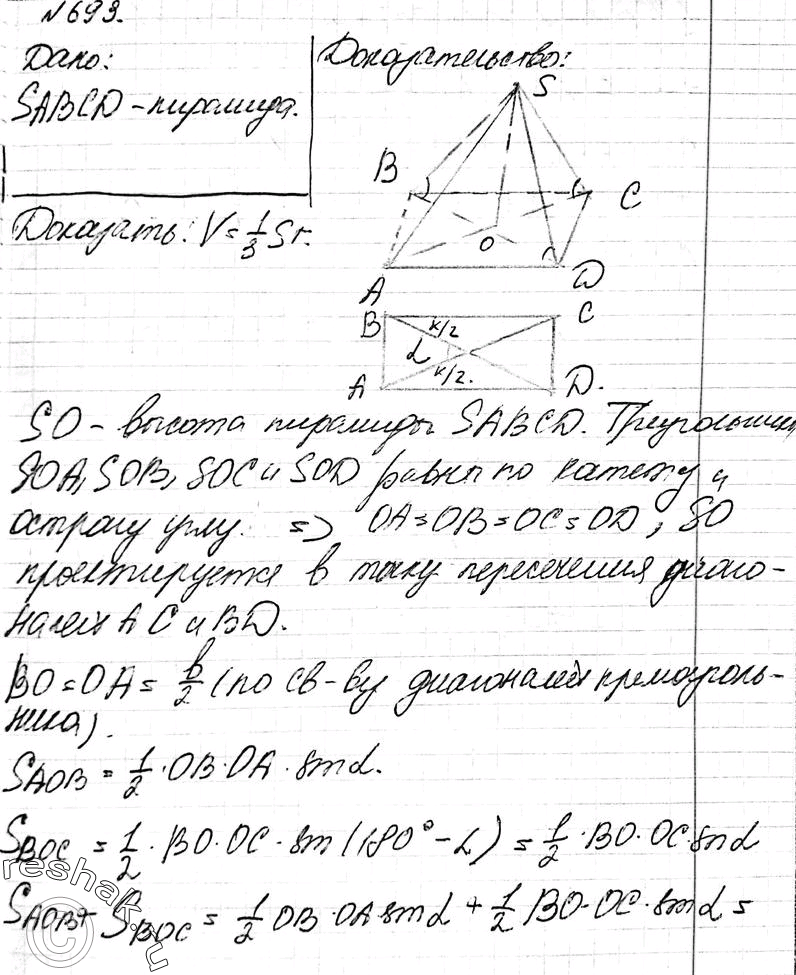 №693.
Дано:
SABCD – пирамида.
Доказать: V = 1/3 Sr.
Доказательство:
S
B
C
O
A
D
B
K/2
C
α
K/2.
A
D.
SO – высота пирамиды SABCD. Треугольники
SOA, SOB, SOC и SOD равны по катету и
острому углу. => OA = OB = OC = OD, SO
проектируется в точку пересечения диаго-
налей AC и BD.
BO = OA = b/2 (по св-ву диагоналей прямоуголь-
ника).
S AOB = 1/2 · OB · OA · sin α.
S BOC = 1/2 · BO · OC · sin (180° – α) = 1/2 · BO · OC · sin α
S AOB + S BOC = 1/2 OB · OA sin α + 1/2 BO · OC · sin α =
© reshak.ru